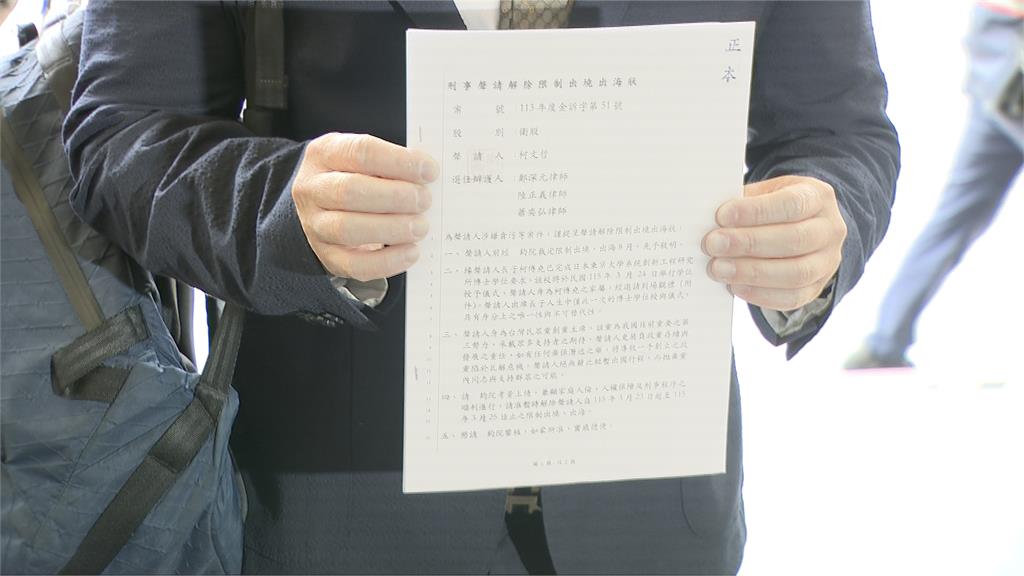 正本
刑事聲請解除限制出境出海狀
案 號:113年度金訴字第51號
股 別:衛股
聲 請 人:柯文哲
選任辯護人:鄭深元律師
陸正義律師
蕭奕弘律師
為聲請人涉嫌貪污等案件,謹提呈聲請解除限制出境出海狀:
一、聲請人前經 鈞院裁定限制出境、出海8月,先予敘明。
二、緣聲請人長子柯傅堯已完成日本東京大學系統創新工程研究
所博士學位要求,該校將於民國115年3月24日舉行學位
授予儀式,聲請人身為柯傅堯之家屬,經邀請到場觀禮(附
件)。聲請人出席長子人生中僅此一次的博士學位授與儀式,
具有身分上之唯一性與不可替代性。
三、聲請人身為台灣民眾黨創黨主席,該黨為我國目前重要之第
三勢力,承載眾多支持者之期待,聲請人更肩負政黨存續與
發展之重任,如有任何棄保潛逃之舉,將導致一手創立之政
黨陷於瓦解危機,聲請人絕無藉之短暫出國行程,而拋棄黨
內同志與支持群眾之可能。
四、請 鈞院考量上情,兼顧家庭人倫、人權保障及刑事程序之
順利進行,請准暫時解除聲請人自115年3月23日起至115
年3月26日止之限制出境、出海。
五、懇請 鈞院鑒核,如蒙所准,實感德便。